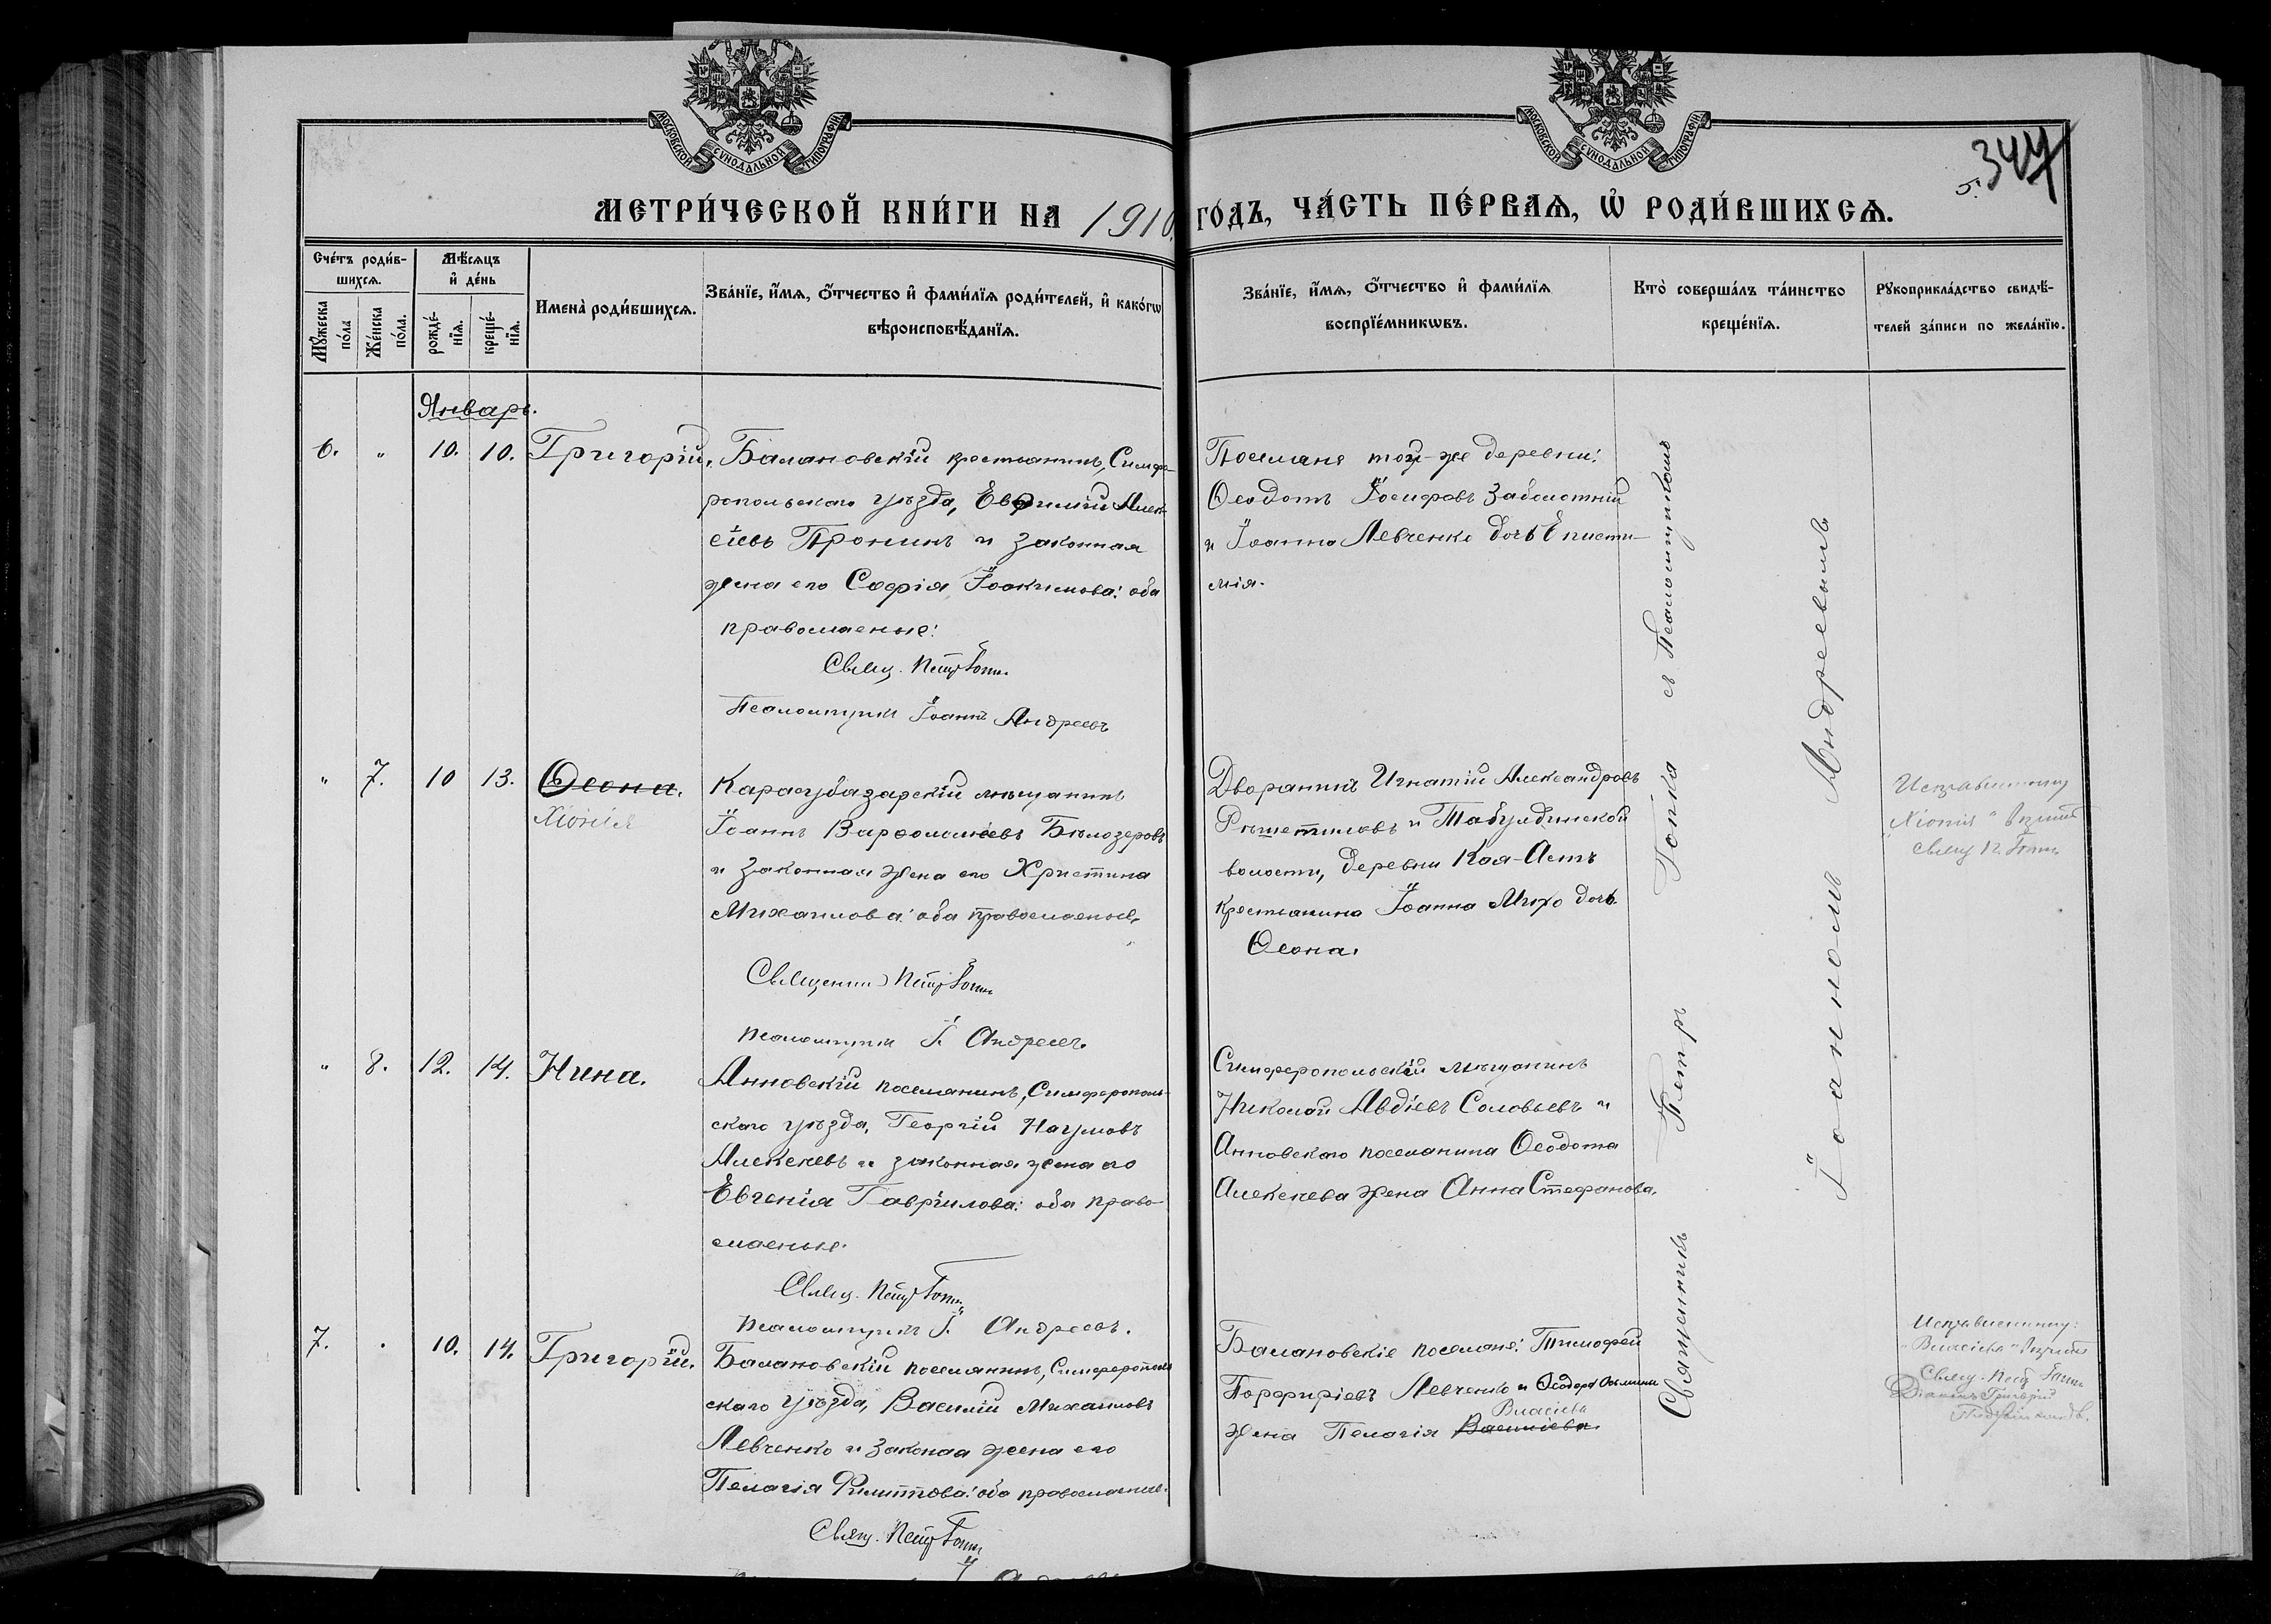 МОСКОВСКОЙ СѴНОДАЛЬНОЙ ТИПОГРАФІИ
МОСКОВСКОЙ СѴНОДАЛЬНОЙ ТИПОГРАФІИ
344
5.
МЕТРИ́ЧЕСКОЙ КНИ́ГИ НА 1910. ГО́ДЪ, ЧА́СТЬ ПЕ́РВАѦ, Ѡ҆ РОДИ́ВШИХСѦ.
Сче́тъ роди́в-
шихсѧ.
Мꙋ́жеска по́ла
Же́нска по́ла.
Мѣ́сѧцъ и҆ де́нь
рожде́-нїѧ.
креще́-нїѧ.
Имена̀ роди́вшихсѧ.
Зва́нїе, и҆́мѧ, ѻ҆́тчество и҆ фами́лїѧ роди́телей, и҆ како́гѡ
вѣроисповѣ́данїѧ.
Зва́нїе, и҆́мѧ, ѻ҆́тчество и҆ фами́лїѧ
воспрїе́мникѡвъ.
Кто̀ соверша́лъ та́инство
креще́нїѧ.
Рꙋкоприкла́дство свидѣ́-
телей за́писи по жела́нїю.
Январь.
6. " 10. 10. Григорій.
Балановскій крестьянинъ, Симфе-
ропольскаго уѣзда, Евфимій Алек-
сіевъ Пронинъ и законная
жена его Софія Іоакимова: оба
православные:
Свящ. Петръ Гопка
Псаломщикъ Іоаннъ Андреевъ
Поселяне той-же деревни:
Ѳеодотъ Іосифовъ Заболотній
и Іоанна Левченко дочь Еписти-
мія.
" 7. 10 13. Ѳеона.
Хіонія
Карасубазарскій мѣщанинъ
Іоаннъ Варѳоломѣевъ Бѣлозеровъ
и законная жена его Христина
Михаилова: оба православные.
Священникъ Петръ Гопка
Псаломщикъ І. Андреевъ.
Дворянинъ Игнатій Александровъ
Рѣшетиловъ и Табулдинской
волости, деревни Коя-Астъ
крестьянина Іоанна Михо дочь
Ѳеона.
Исправленному
"Хіонія" вѣрить
свящ. П. Гопка
" 8. 12. 14. Нина.
Анновскій поселянинъ, Симферополь-
скаго уѣзда, Георгій Наумовъ
Алексѣевъ и законная жена его
Евгенія Гавріилова: оба право-
славные.
Свящ. Петръ Гопка
Псаломщикъ І. Андреевъ.
Симферопольскій мѣщанинъ
Николай Авдіевъ Соловьевъ и
Анновскаго поселянина Ѳеодота
Алексѣева жена Анна Стефанова.
7. " 10. 14. Григорій.
Балановскій поселянинъ, Симферополь
скаго уѣзда, Василій Михаиловъ
Левченко и законая жена его
Пелагія Филиппова: оба православные.
Свящ. Петръ Гопка
Балановскіе поселяне: Тимофей
Порфиріевъ Левченко и Ѳеодора
жена Пелагія Василіева.
Власіева
Исправленному:
"Власіева" вѣрить
Свящ. Петръ Гопка
Діаконъ Григорій
Священникъ Петръ Гопка съ Псаломщикомъ
Іоанномъ Андреевымъ